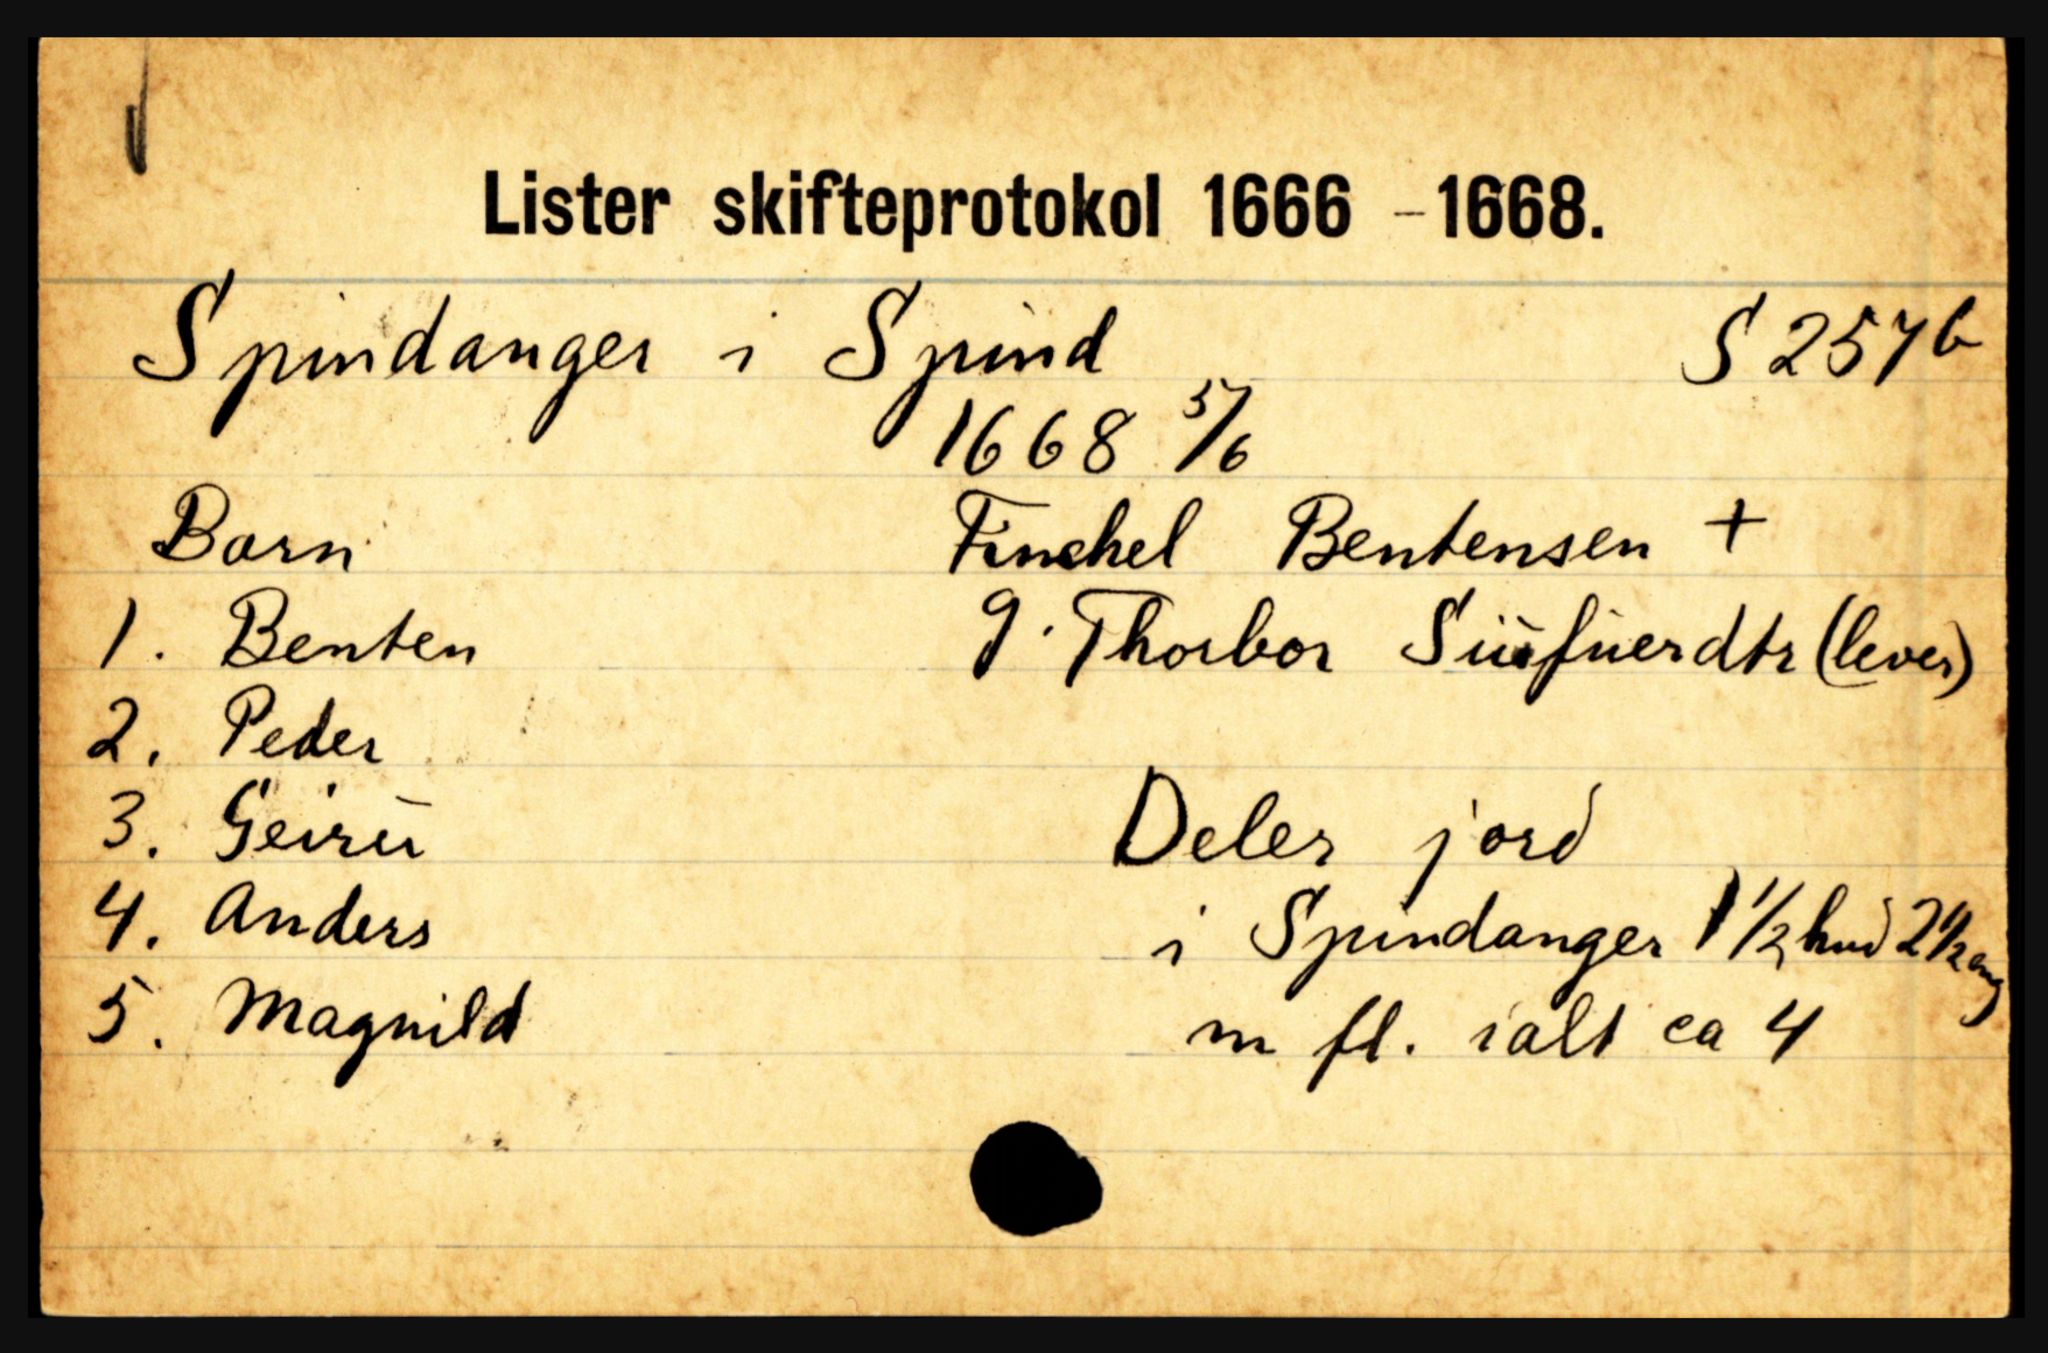 Lister skifteprotokol 1666 - 1668.
Spindanger i Spind S 257 b
1668 5/6
Barn Finchel Bentensen +
1. Benten g. Thorbor Siüfuerdtr (lever)
2. Peder
3. Geirü Deler jord
4. Anders i Spindanger 1 1/2 hud 2 1/2 eng
5. Magnild m fl. ialt ca 4